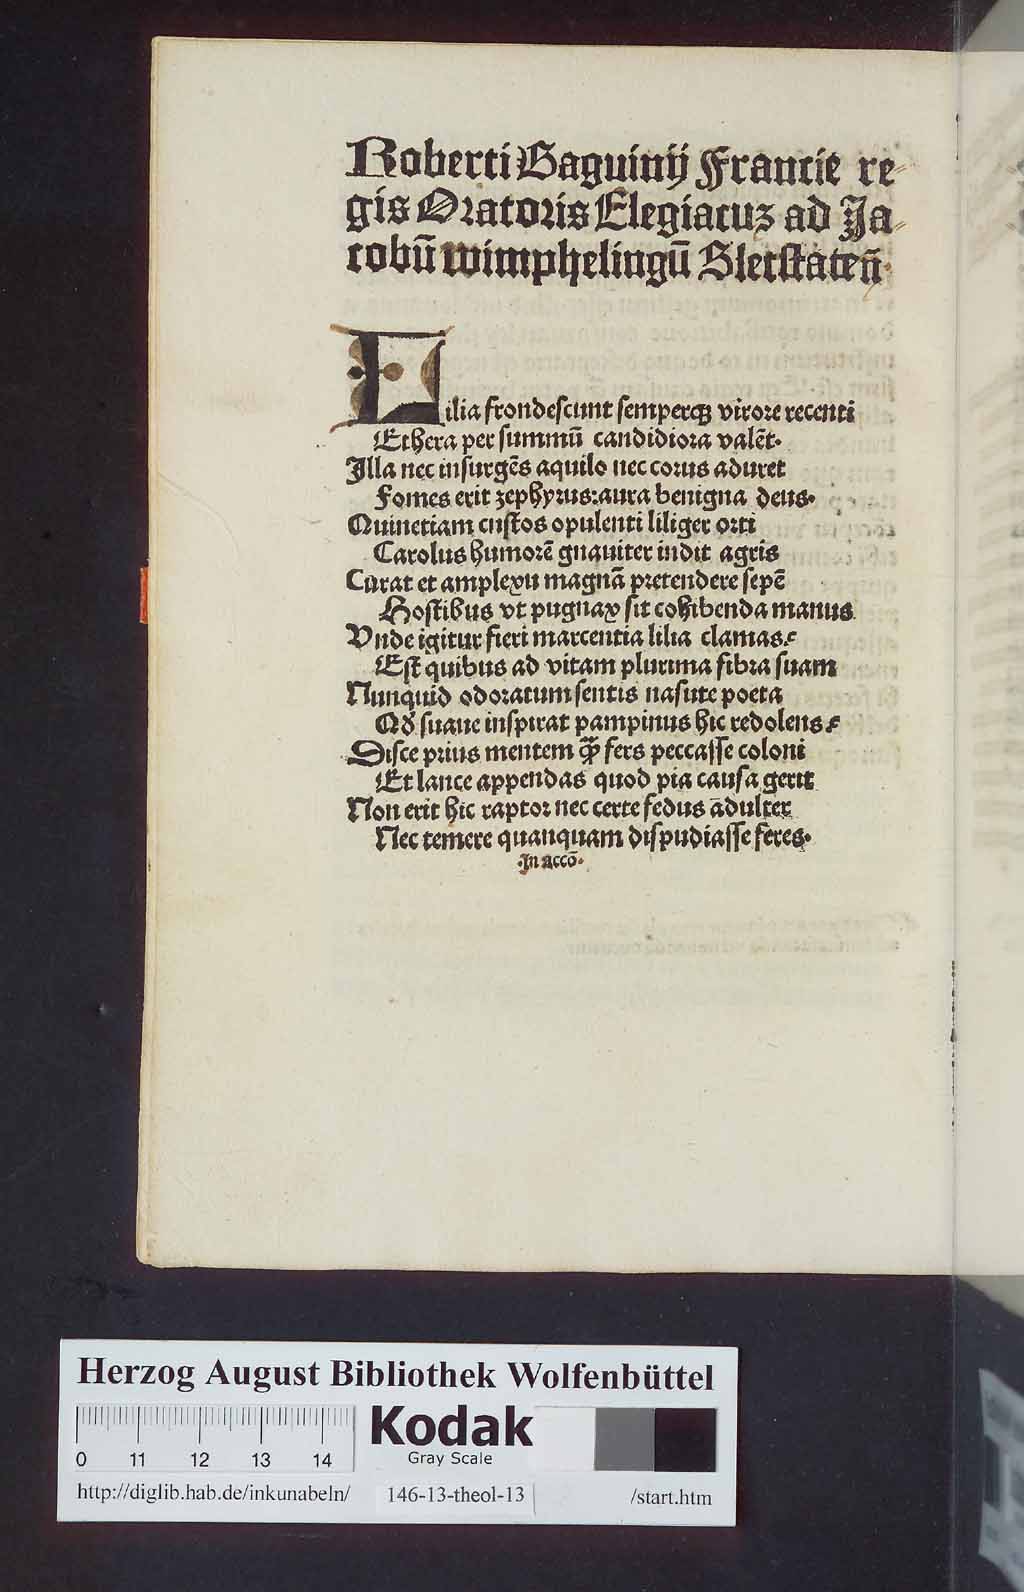 Roberti Gaguinij Francie re⸗
gis Oratoris Elegiacuʒ ad Ja⸗
cobū wimphelingū Sletstateñ.
Lilia frondescunt semperqꝫ virore recenti
Ethera per summū candidiora valēt.
Illa nec insurgēs aquilo nec corus aduret
Fomes erit zephyrus:aura benigna deus.
Quinetiam custos opulenti liliger orti
Carolus humorē gnauiter indit agris
Curat et amplexu magnā pretendere sepē
Hostibus vt pugnax sit cohibenda manus
Vnde igitur fieri marcentia lilia clamas⸗
Est quibus ad vitam plurima fibra suam
Nunquid odoratum sentis nasute poeta
Qđ suaue inspirat pampinus hic redolens⸗
Disce prius mentem qͣꝫ fers peccasse coloni
Et lance appendas quod pia causa gerit
Non erit hic raptor nec certe fedus adulter
Nec temere quanquam dispudiasse feres.
.In accō.
Herzog August Bibliothek Wolfenbüttel
0 11 12 13 14
Kodak
Gray Scale
http://diglib.hab.de/inkunabeln/ 146-13-theol-13 /start.htm